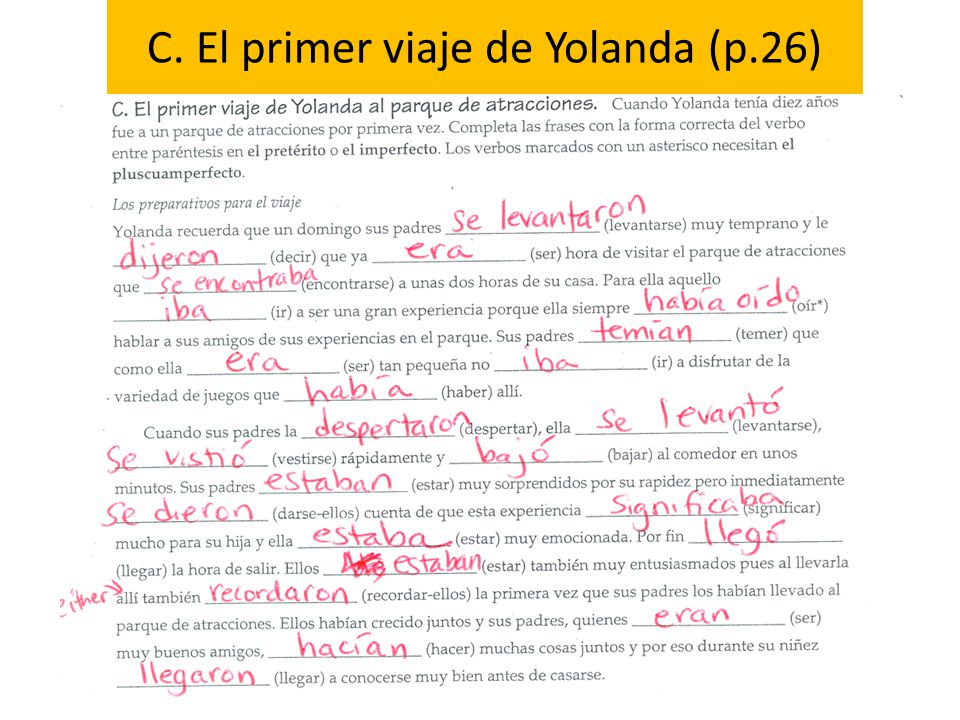 C. El primer viaje de Yolanda (p.26)
C. El primer viaje de Yolanda al parque de atracciones. Cuando Yolanda tenía diez años
fue a un parque de atracciones por primera vez. Completa las frases con la forma correcta del verbo
entre paréntesis en el pretérito o el imperfecto. Los verbos marcados con un asterisco necesitan el
pluscuamperfecto.
Los preparativos para el viaje
Yolanda recuerda que un domingo sus padres se levantaron (levantarse) muy temprano y le
dijeron (decir) que ya era (ser) hora de visitar el parque de atracciones
que se encontraba (encontrarse) a unas dos horas de su casa. Para ella aquello
iba (ir) a ser una gran experiencia porque ella siempre había oído (oír*)
hablar a sus amigos de sus experiencias en el parque. Sus padres temían (temer) que
como ella era (ser) tan pequeña no iba (ir) a disfrutar de la
variedad de juegos que había (haber) allí.
Cuando sus padres la despertaron (despertar), ella se levantó (levantarse),
se vistió (vestirse) rápidamente y bajó (bajar) al comedor en unos
minutos. Sus padres estaban (estar) muy sorprendidos por su rapidez pero inmediatamente
se dieron (darse-ellos) cuenta de que esta experiencia significaba (significar)
mucho para su hija y ella estaba (estar) muy emocionada. Por fin llegó
(llegar) la hora de salir. Ellos estaban (estar) también muy entusiasmados pues al llevarla
either → allí también recordaron (recordar-ellos) la primera vez que sus padres los habían llevado al
parque de atracciones. Ellos habían crecido juntos y sus padres, quienes eran (ser)
muy buenos amigos, hacían (hacer) muchas cosas juntos y por eso durante su niñez
llegaron (llegar) a conocerse muy bien antes de casarse.